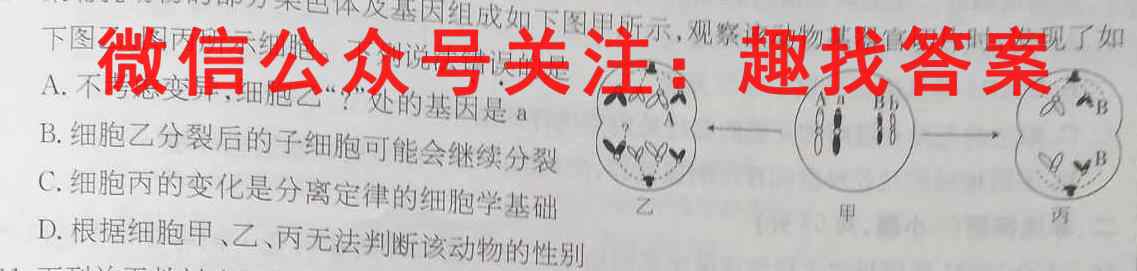 部分染色体及基因组成如下图甲所示,观察该动物
现了如
下图
丙所示细胞。
说法错误的是
微信公众号关注：趣找答案
A.不考虑变异,细胞乙“?”处的基因是a
B.细胞乙分裂后的子细胞可能会继续分裂
C.细胞丙的变化是分离定律的细胞学基础
D.根据细胞甲、乙、丙无法判断该动物的性别
A
?
乙
A a B b
甲
B
B
丙